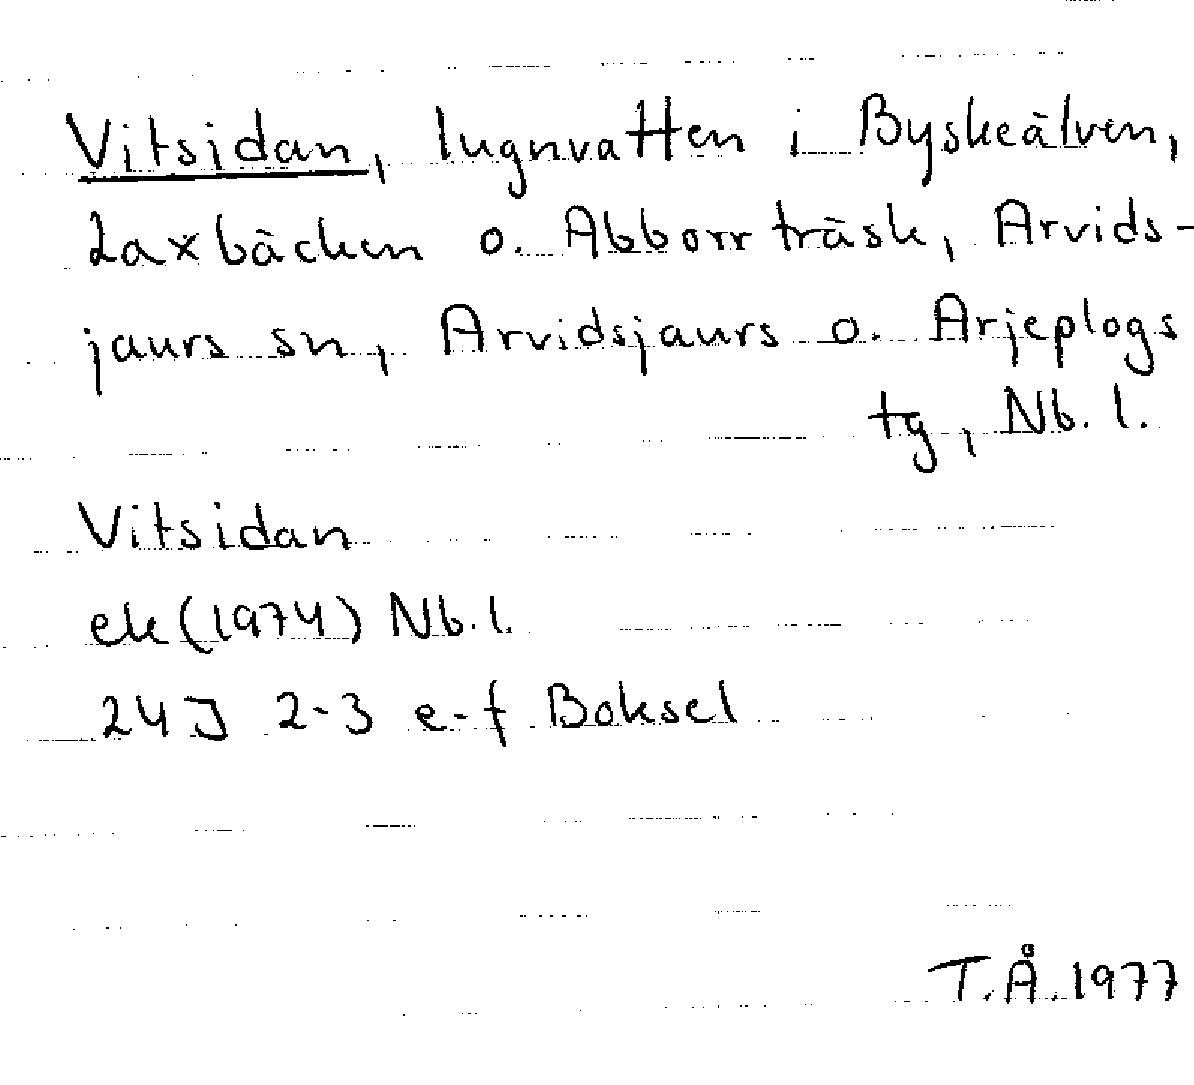 Vitsidan, lugnvatten i Byskeälven,
Laxbäcken o. Abborrträsk, Arvids-
jaurs sn, Arvidsjaurs o. Arjeplogs
tg, Nb. l.
Vitsidan
ek (1974) Nb. l.
24J 2-3 e-f Boksel
T.Å. 1977